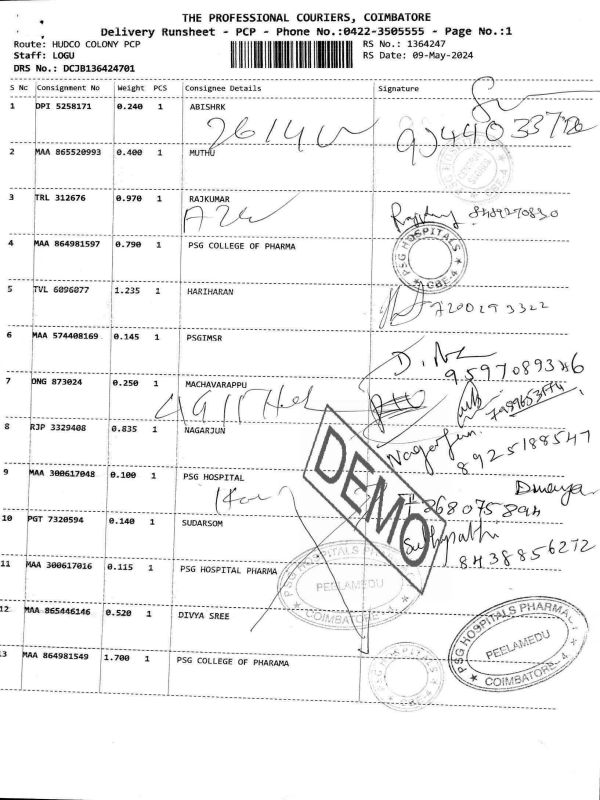 THE PROFESSIONAL COURIERS, COIMBATORE
Delivery Runsheet - PCP - Phone No.:0422-3505555 - Page No.:1
Route: HUDCO COLONY PCP RS No.: 1364247
Staff: LOGU RS Date: 09-May-2024
DRS No.: DCJB136424701
S No Consignment No Weight PCS Consignee Details Signature
1 DPI 5258171 0.240 1 ABISHRK
2 MAA 865520993 0.400 1 MUTHU
3 TRL 312676 0.970 1 RAJKUMAR
8489270830
4 MAA 864981597 0.790 1 PSG COLLEGE OF PHARMA
PSG HOSPITALS CBE-4
5 TVL 6096077 1.235 1 HARIHARAN
7200293322
6 MAA 574408169 0.145 1 PSGIMSR
9597089346
7 DNG 873024 0.250 1 MACHAVARAPU
8 RJP 3329408 0.835 1 NAGARJUN
Nagarjun
8925188547
9 MAA 300617048 0.100 1 PSG HOSPITAL
DEMO
10 PGT 7320594 0.140 1 SUDARSOM
8438856272
11 MAA 300617016 0.115 1 PSG HOSPITAL PHARMA
PSG HOSPITALS PHARMACY
PEELAMEDU
COIMBATORE
12 MAA 865446146 0.520 1 DIVYA SREE
PSG HOSPITALS PHARMACY
PEELAMEDU
COIMBATORE - 4
13 MAA 864981549 1.700 1 PSG COLLEGE OF PHARAMA
PSG HOSPITALS CBE-4